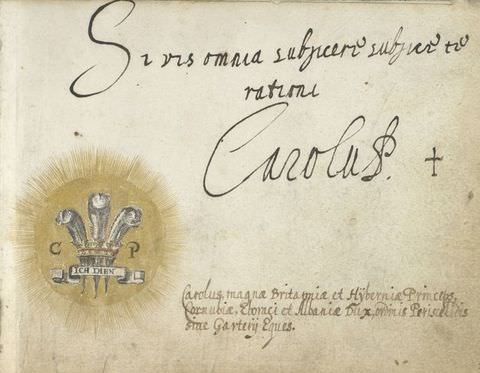 Si vis omnia subjicere subjice te
rationi
Carolus P.
C P
ICH DIEN
Carolus, magnæ Britanniæ et Hÿberniæ Princeps,
Cornubiæ, Eboraci et Albaniæ Dux, ordinis Periscelidis
siue Garterij Eques.